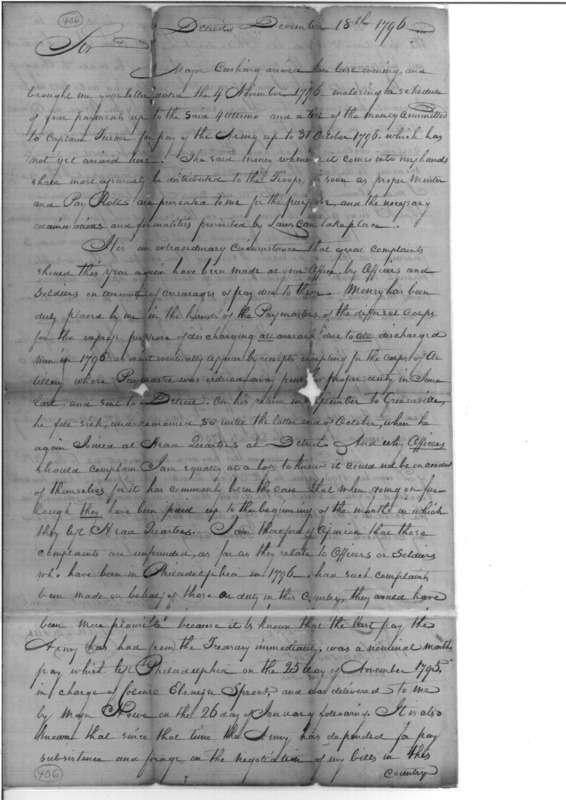 406
Detroit December 18th 1796
Sir
Major Cushing arrived here last evening, and
brought me your letter dated the 4 November 1796 inclosing a schedule
of your payments up to the said 4 ultimo and a test of the money Committed
to Captain Turner for pay of the Army up to 31 October 1796. which has
not yet arrived here. The said money when it comes into my hands
shall most assuredly be distributed to the Troops, as soon as proper Muster
and Pay Rolls are presented to me for the purpose, and the necessary
examinations and formalities prescribed by Laws can take place.
It is an extraordinary Circumstance that great complaints
should this year again have been made at your Office by Officers and
Soldiers on account of arrearages of pay due to them. Money has been
duly placed by me in the hands of the Paymasters of the different Corps,
for the express purpose of discharging all arrears due to all discharged
men in 1796 as must eventually appear by receipts excepting for the corps of Ar
tillery whose Paymaster was ordered away from proper duty in June
last, and sent to Detroit. On his return in September to Greenville,
he fell sick, and remained so until the latter end of October, when he
again joined at Head Quarters at Detroit. And why Officers
should complain I am equally at a loss to know it could not be on account
of themselves for it has commonly been the case that when going on fur
lough they have been paid up to the beginning of the month in which
they left Head Quarters. I am therefore of Opinion that those
complaints are unfounded, as far as they relate to Officers or Soldiers
who have been in Philadelphia in 1796. had such complaints
been made on behalf of those on duty in this Country, they would have
been more plausible because it is known that the last pay the
Army has had from the Treasury immediately, was a nominal months
pay which left Philadelphia on the 25 day of November 1795.
in charge of Colonel Ebenezer Sprout, and was delivered to me
by Major Howe on the 26 day of January following. It is also
known that since that time the Army has depended for pay
subsistence and forage on the negotiation of my bills in this
Country
406